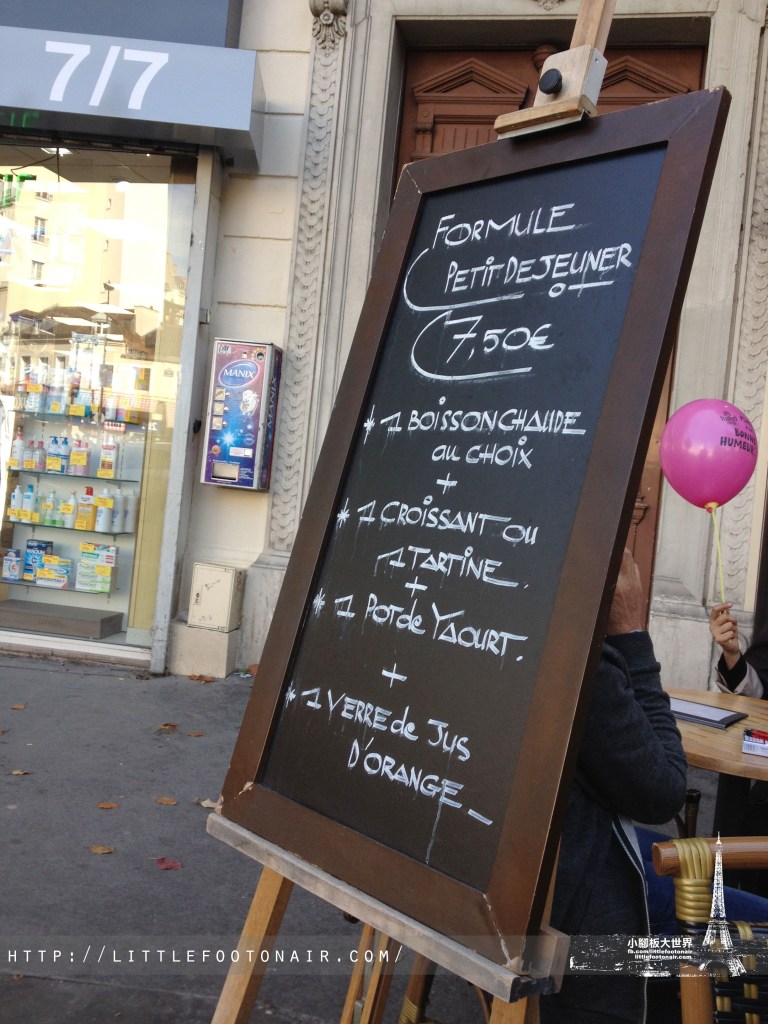 7/7
FORMULE
PETIT DEJEUNER
7,50€
* 1 BOISSON CHAUDE
au CHOIX
+
* 1 CROISSANT OU
1 TARTINE.
+
* 1 POT de YAOURT.
+
* 1 VERRE de JUS
D'ORANGE_
MANIX
MANIX
BONNE
HUMEUR
HTTP://LITTLEFOOTONAIR.COM/
小腳板大世界
fb.com/littlefootonair
littlefootonair.com